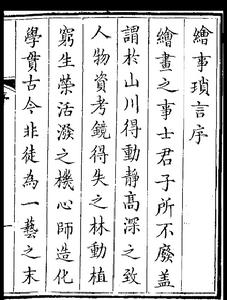 繪事瑣言序
繪畫之事士君子所不廢蓋
謂於山川得動靜高深之致
人物資考鏡得失之林動植
窮生榮活潑之機心師造化
學貫古今非徒為一藝之末